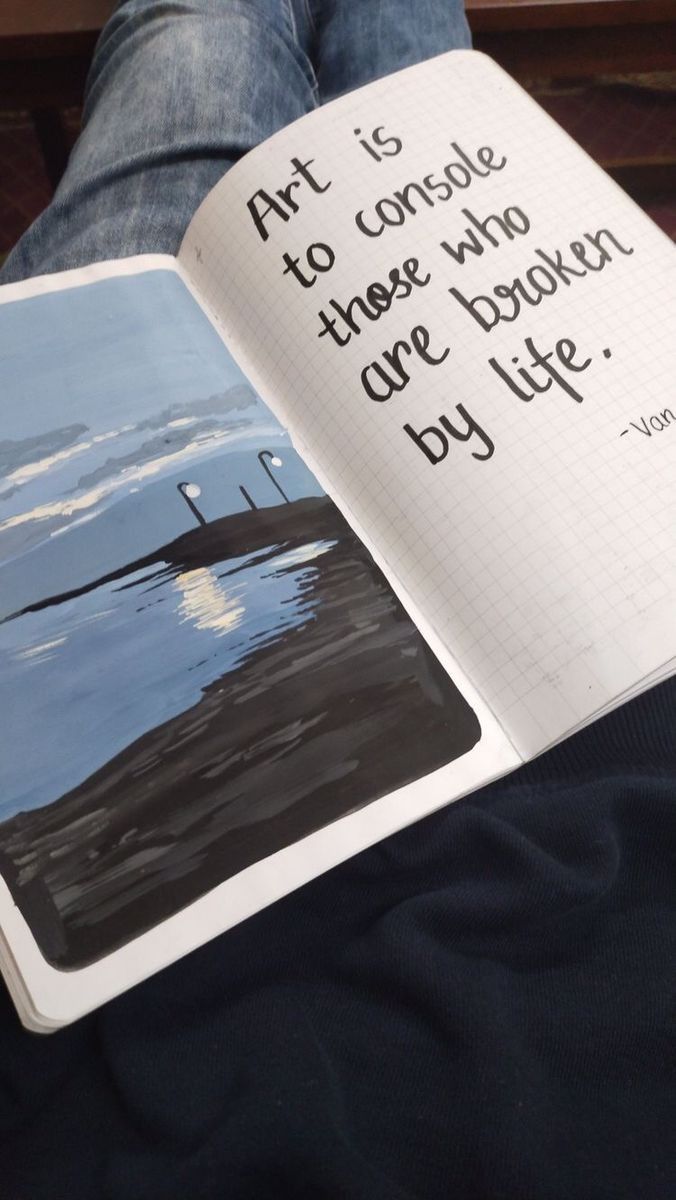 Art is
to console
those who
are broken
by life.
-Van